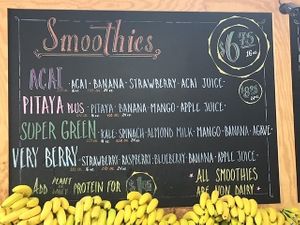 Smoothies
$6.75
16 oz
ACAI - ACAI - BANANA - STRAWBERRY - ACAI JUICE -
PITAYA PLUS - PITAYA - BANANA - MANGO - APPLE JUICE -
SUPER GREEN - KALE - SPINACH - ALMOND MILK - MANGO - BANANA - AGAVE -
VERY BERRY - STRAWBERRY - RASPBERRY - BLUEBERRY - BANANA - APPLE JUICE -
ADD PROTEIN FOR
* ALL SMOOTHIES
ARE NON DAIRY *